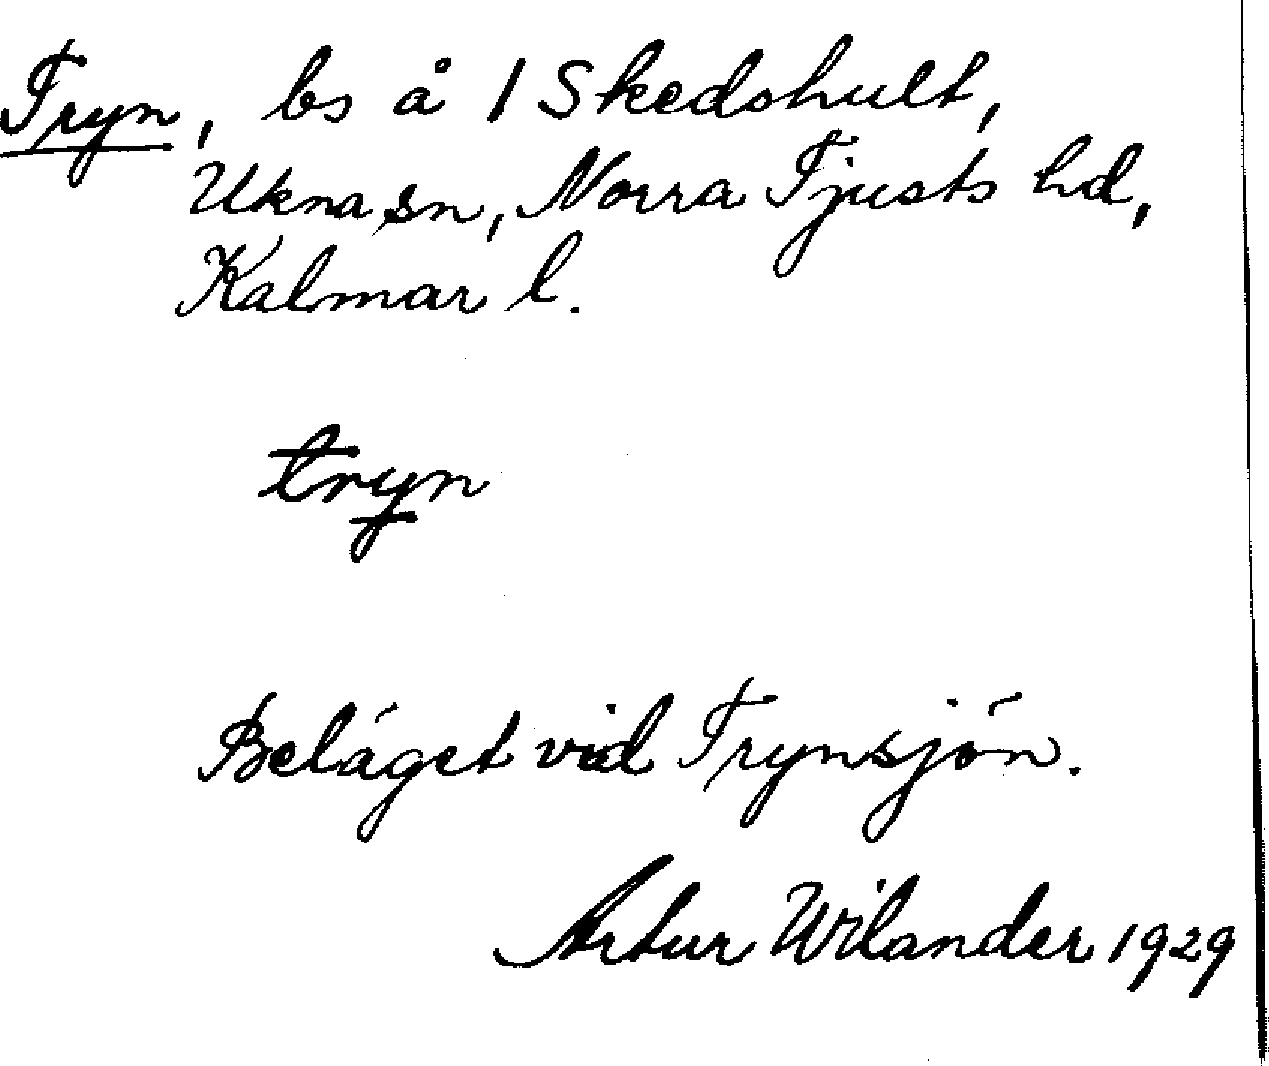 Tryn, bs å 1 Skedshult,
Ukna sn, Norra Tjusts hd,
Kalmar l.
tryn
Beläget vid Trynsjön.
Artur Wilander 1929